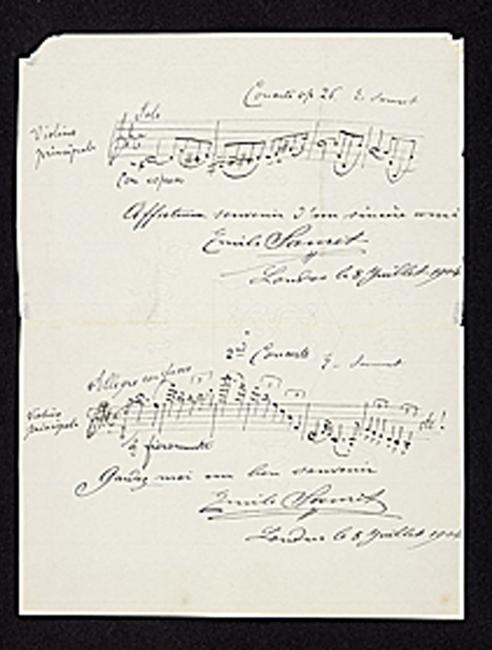 Concerto op 26. E. Sauret
Solo
Violino
principale
Con espress
Affectueux souvenir d'un sincère ami
Emile Sauret
Londres le 8 Juillet 1904
2nd Concerto E. Sauret
Allegro con fuoco
Violino
principale
fieramente
etc!
Gardez moi un bon souvenir
Emile Sauret
Londres le 8 Juillet 1904